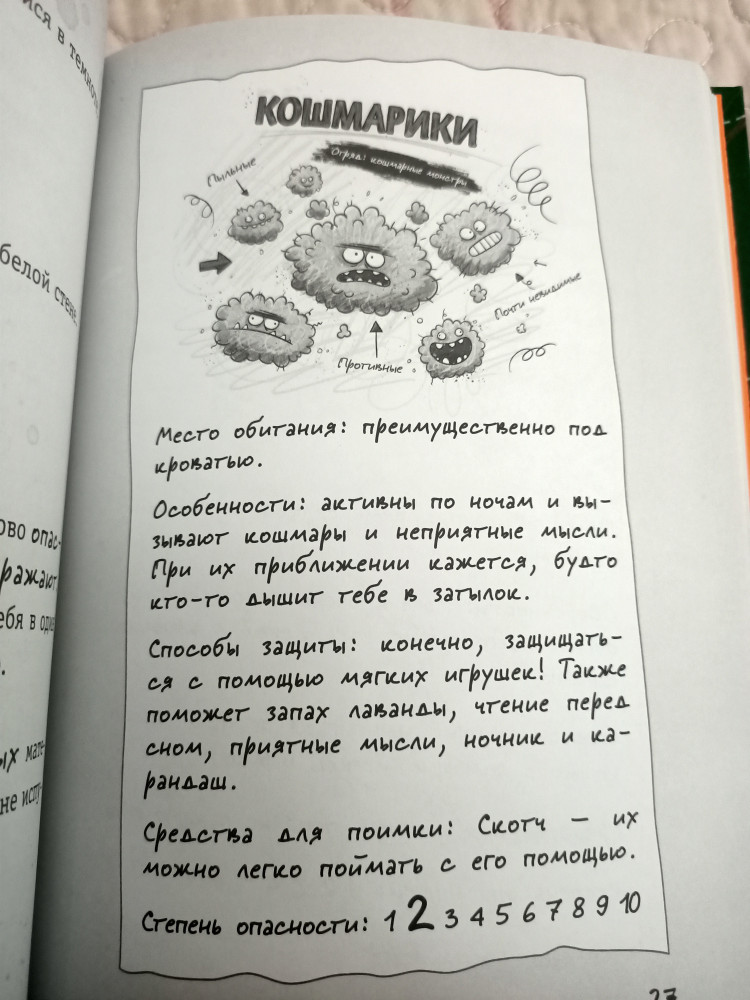 в темно
белой стене.
КОШМАРИКИ
Отряд: кошмарные монстры
Пыльные
Почти невидимые
Противные
Место обитания: преимущественно под
кроватью.
Особенности: активны по ночам и вы-
зывают кошмары и неприятные мысли.
При их приближении кажется, будто
кто-то дышит тебе в затылок.
Способы защиты: конечно, защищать-
ся с помощью мягких игрушек! Также
поможет запах лаванды, чтение перед
сном, приятные мысли, ночник и ка-
рандаш.
Средства для поимки: Скотч – их
можно легко поймать с его помощью.
Степень опасности: 1 2 3 4 5 6 7 8 9 10
27